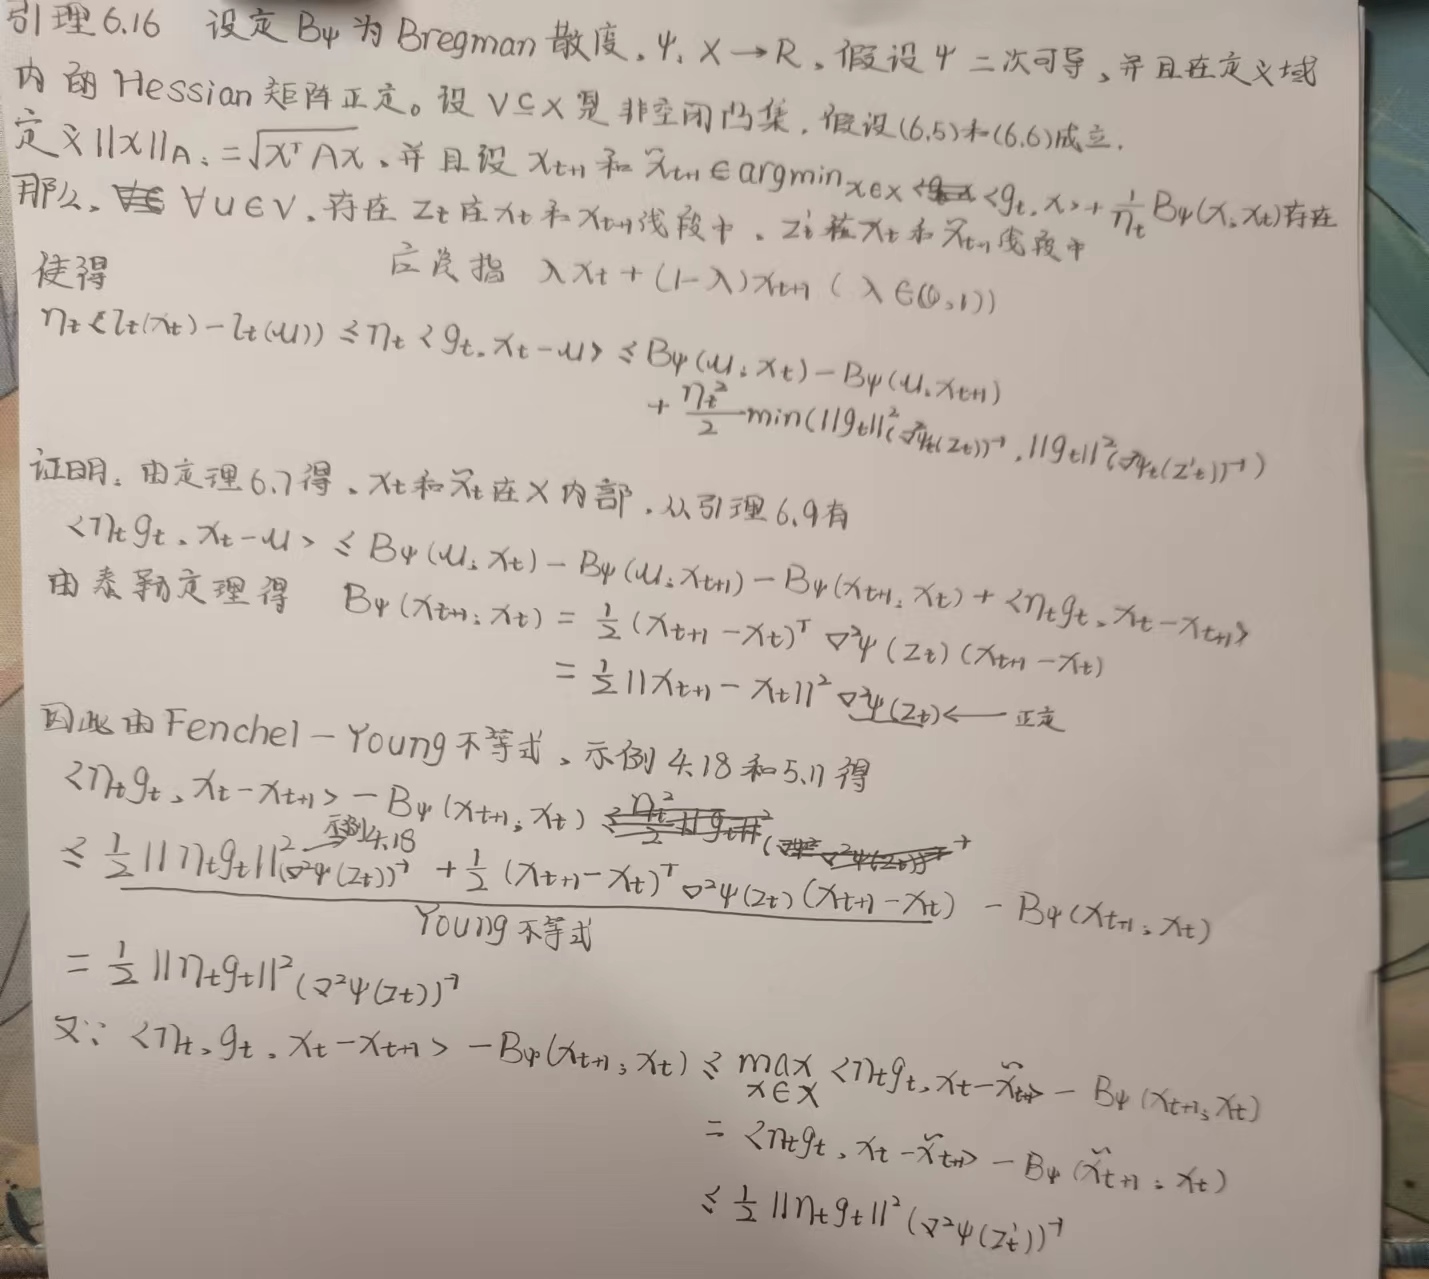 引理6.16 设定Bψ为Bregman散度,ψ: X→R,假设ψ二次可导,并且在定义域
内的Hessian矩阵正定。设V⊆X是非空闭凸集,假设(6.5)和(6.6)成立.
定义||x||A:=√(xᵀAx),并且设 xt+1 和 x̃t+1∈argmin x∈X <gt,x>+1/ηt Bψ(x;xt)存在
那么, ∀u∈V,存在 zt在xt和xt+1线段中,z't在xt和x̃t+1线段中
使得 应该指 λxt+(1-λ)xt+1 (λ∈(0,1))
ηt(lt(xt)-lt(u)) ≤ ηt<gt,xt-u> ≤ Bψ(u;xt)-Bψ(u;xt+1)
+ ηt²/2 min(||gt||²(∇²ψt(zt))⁻¹, ||gt||²(∇²ψt(z't))⁻¹)
证明:由定理6.7得,xt和x̃t在X内部,从引理6.9有
<ηtgt,xt-u> ≤ Bψ(u;xt)-Bψ(u;xt+1)-Bψ(xt+1;xt)+<ηtgt,xt-xt+1>
由泰勒定理得 Bψ(xt+1;xt) = 1/2(xt+1-xt)ᵀ∇²ψ(zt)(xt+1-xt)
= 1/2||xt+1-xt||²∇²ψ(zt) ← 正定
因此由Fenchel-Young不等式,示例4.18和5.11得
<ηtgt,xt-xt+1>-Bψ(xt+1;xt)
示例4.18
≤ 1/2||ηtgt||²(∇²ψ(zt))⁻¹ + 1/2(xt+1-xt)ᵀ∇²ψ(zt)(xt+1-xt) - Bψ(xt+1;xt)
Young不等式
= 1/2||ηtgt||²(∇²ψ(zt))⁻¹
又∵ <ηt,gt,xt-xt+1>-Bψ(xt+1;xt) ≤ max x∈X <ηtgt,xt-x̃t+1>-Bψ(xt+1;xt)
= <ηtgt,xt-x̃t+1>-Bψ(x̃t+1;xt)
≤ 1/2||ηtgt||²(∇²ψ(z't))⁻¹